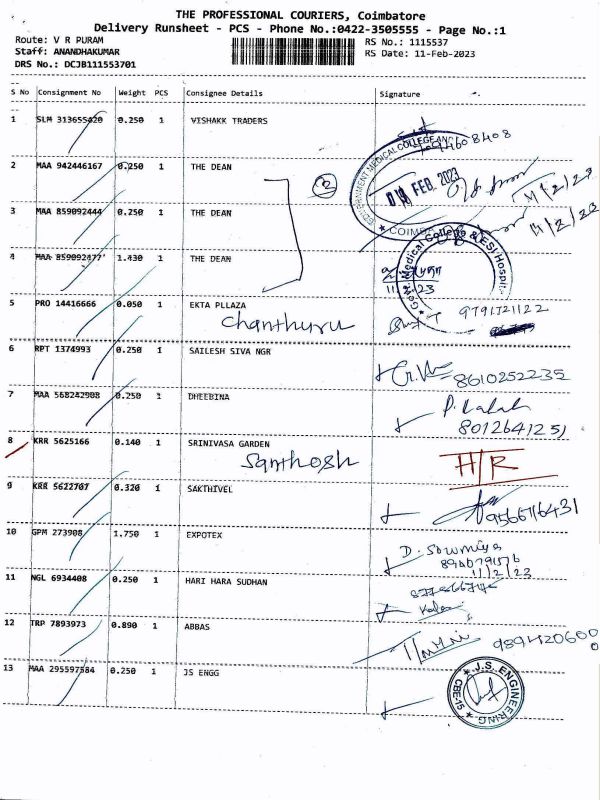 THE PROFESSIONAL COURIERS, Coimbatore
Delivery Runsheet - PCS - Phone No.:0422-3505555 - Page No.:1
Route: V R PURAM
RS No.: 1115537
Staff: ANANDHAKUMAR
RS Date: 11-Feb-2023
DRS No.: DCJB111553701
S No Consignment No Weight PCS Consignee Details Signature
1 SLM 313655420 0.250 1 VISHAKK TRADERS
2 MAA 942446167 0.250 1 THE DEAN
GOVERNMENT MEDICAL COLLEGE AND
FEB 2023
11/2/23
3 MAA 859092444 0.250 1 THE DEAN
11/2/23
4 MAA 859092477 1.430 1 THE DEAN
Govt. Medical College & ESI Hospital
5 PRO 14416666 0.050 1 EKTA PLLAZA
Chanthuru
9791721122
6 RPT 1374993 0.250 1 SAILESH SIVA NGR
8610252235
7 MAA 568242908 0.250 1 DHEEBINA
8012641251
8 KRR 5625166 0.140 1 SRINIVASA GARDEN
Santhosh
H/R
9 KRR 5622707 0.320 1 SAKTHIVEL
9566716431
10 GPM 273908 1.750 1 EXPOTEX
D. Sowmiya
11/2/23
11 NGL 6934408 0.250 1 HARI HARA SUDHAN
12 TRP 7893973 0.890 1 ABBAS
13 MAA 295597584 0.250 1 JS ENGG
J.S. ENGINEERING
CBE-15